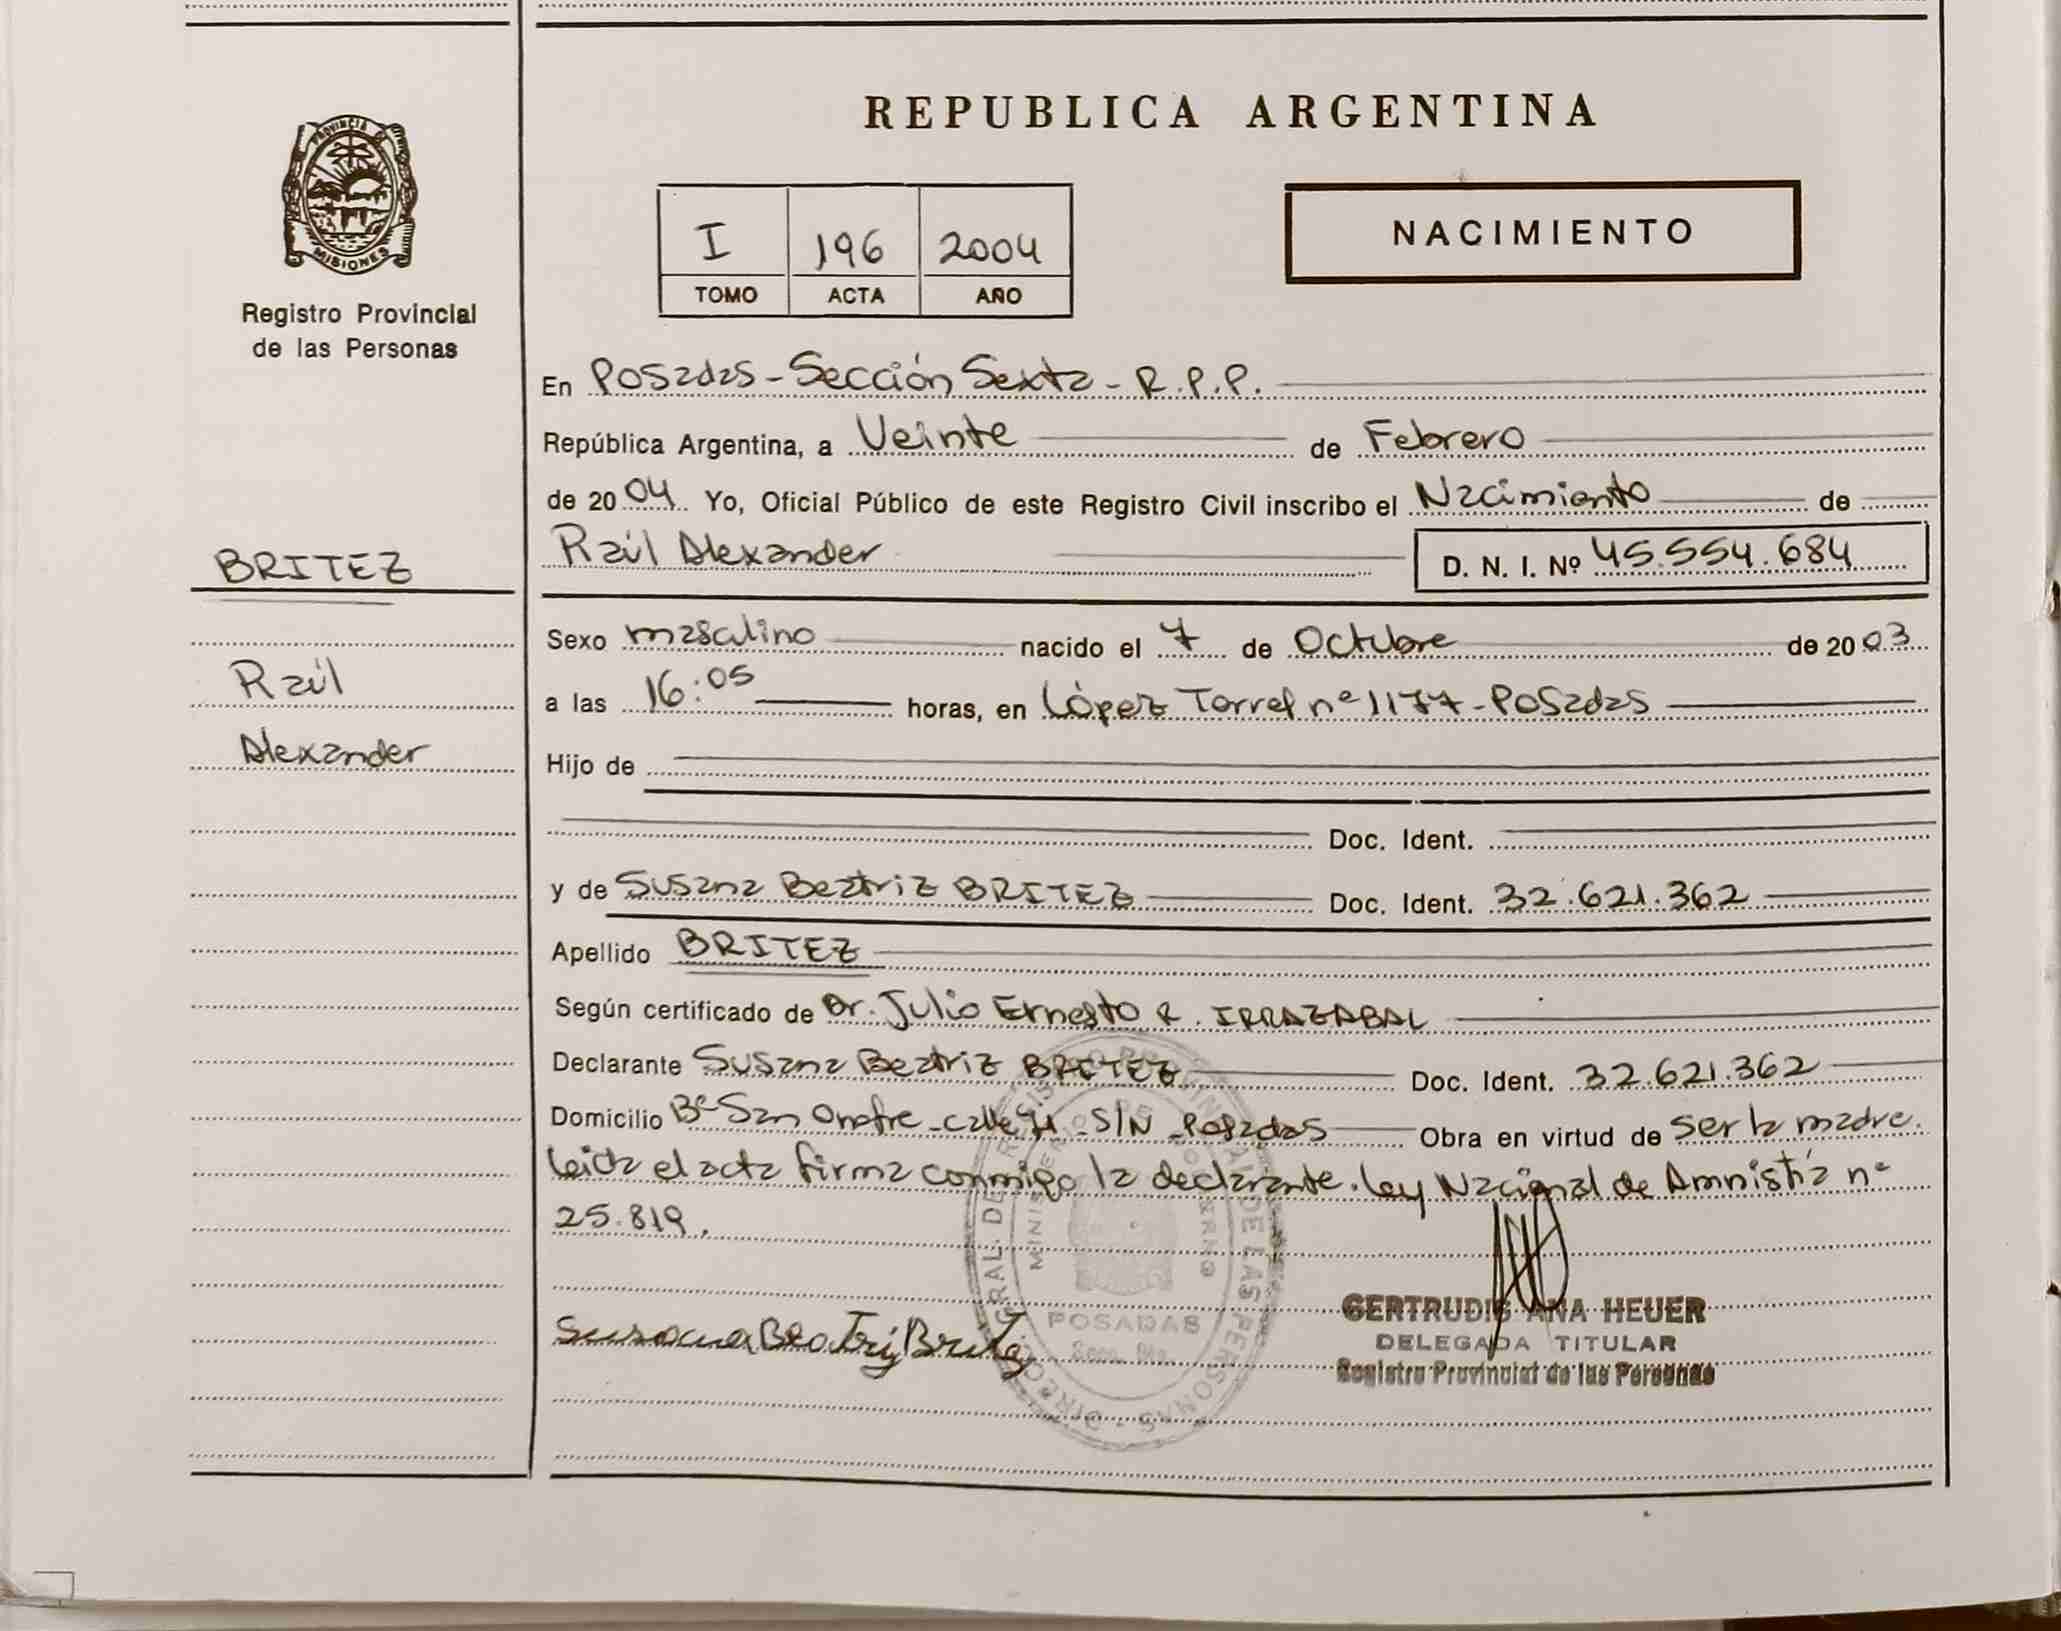 PROVINCIA DE
MISIONES
Registro Provincial
de las Personas
BRITEZ
Raúl
Alexander
REPUBLICA ARGENTINA
I 196 2004
TOMO ACTA AÑO
NACIMIENTO
En Posadas - Sección Sexta - R.P.P.
República Argentina, a Veinte de Febrero
de 2004 Yo, Oficial Público de este Registro Civil inscribo el Nacimiento de
Raúl Alexander D. N. I. Nº 45.554.684
Sexo masculino nacido el 7 de Octubre de 2003
a las 16:05 horas, en López Torres nº 1177 - Posadas
Hijo de
Doc. Ident.
y de Susana Beatriz BRITEZ Doc. Ident. 32.621.362
Apellido BRITEZ
Según certificado de Dr. Julio Ernesto R. IRRAZABAL
Declarante Susana Beatriz BRITEZ Doc. Ident. 32.621.362
Domicilio Bº San Onofre - calle S/N - Posadas Obra en virtud de ser la madre.
Leída el acta firma conmigo la declarante. Ley Nacional de Amnistía nº
25.819.
Susana Beatriz Britez
POSADAS
GERTRUDIS ANA HEUER
DELEGADA TITULAR
Registro Provincial de las Personas